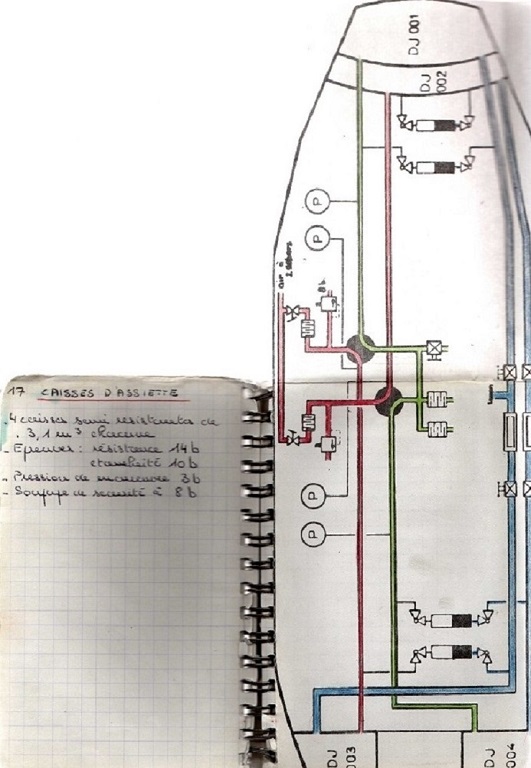 17 CAISSES D'ASSIETTE
- 4 caisses semi résistantes de
. 3,1 m³ chacune
- Epreuves : résistance 14 b
étanchéité 10 b
- Pression de manœuvre 3 b
- Soupape de sécurité à 8 b
DJ 001
DJ 002
P
P
air à
8b
P
P
DJ 003
DJ 004